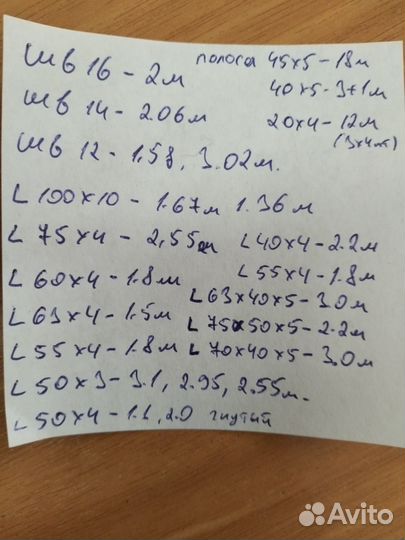 шв 16 - 2м
шв 14 - 2.06м
шв 12 - 1.58, 3.02м.
полоса 45х5 - 18м
40х5 - 3+1м
20х4 - 12м
(3х4м)
L 100х10 - 1.67м 1.36м
L 75х4 - 2,55м
L 60х4 - 1.8м
L 63х4 - 1.5м
L 55х4 - 1.8м
L 40х4 - 2.2м
L 55х4 - 1.8м
L 63х40х5 - 3.0м
L 75х50х5 - 2.2м
L 70х40х5 - 3.0м
L 50х3 - 3.1, 2.95, 2.55м.
L 50х4 - 1.1, 2.0 гнутый
Avito